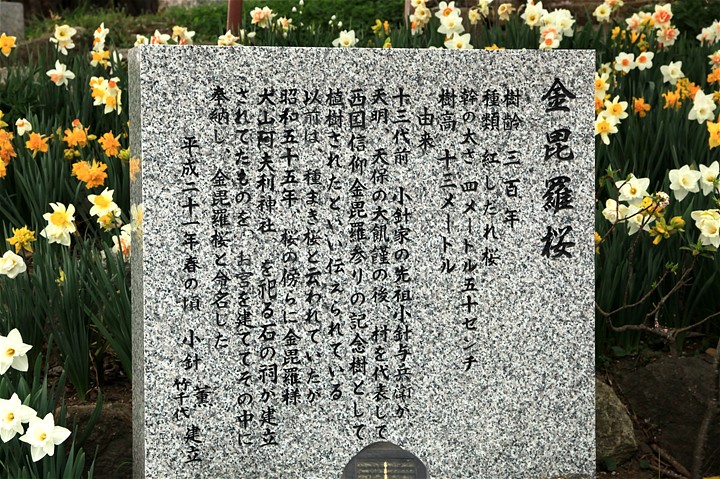 金毘羅桜
樹齢 三百年
種類 紅しだれ桜
幹の太さ 四メートル五十センチ
樹高 十三メートル
由来
十三代前 小針家の先祖小針与兵衛が
天明、天保の大飢饉の後、村を代表して
西国信仰金毘羅参りの記念樹として
植樹されたといい伝えられている
以前は、種まき桜と云われていたが
昭和五十五年、桜の傍らに金毘羅様
大山阿夫利神社 を祀る石の祠が建立
されてたものを、お宮を建ててその中に
奉納し、金毘羅桜と命名した
平成二十一年春の頃 小針 薫 建立
竹千代